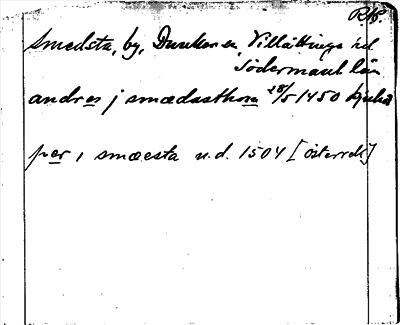 Smedsta, by, Dunker sn, Villåttinge hd
Södermanl län
andres j smædasthom 28/5 1450
per i smæsta u.d. 1504 [österrek]